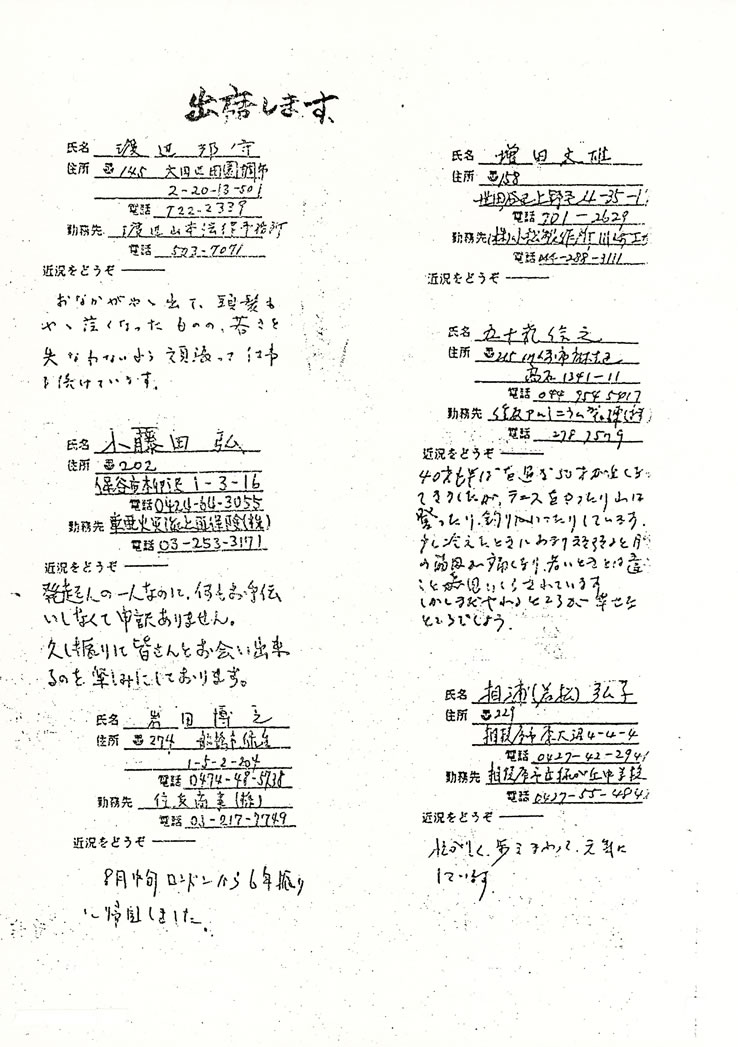 出席します、
氏名 渡辺邦守
住所 〒145 大田区田園調布
2-20-13-501
電話 722-2339
勤務先 渡辺山本法律事務所
電話 503-7071
近況をどうぞ
おなかがやゝ出て、頭髪も
やゝ泣くなったものの、若さを
失なわないよう頑張って仕事
を続けています。
氏名 小藤田 弘
住所 〒202
保谷市柳沢 1-3-16
電話 0424-64-3055
勤務先 東亜火災海上再保険(株)
電話 03-253-3171
近況をどうぞ
発起人の一人なのに、何もお手伝
いしなくて申訳ありません。
久し振りに皆さんとお会い出来
るのを楽しみにしております。
氏名 岩田 博之
住所 〒274 船橋市
1-5-2-204
電話 0474-48-5738
勤務先 住友商事(株)
電話 03-217-
近況をどうぞ
8月中旬ロンドンから6年振り
に帰国しました。
氏名 増田文雄
住所 〒158
世田谷区上野毛 4-35-1
電話 701-2629
勤務先 (株)小松製作所川崎工
電話 044-288-3111
近況をどうぞ
氏名 五十嵐
住所 〒215 川崎市麻生区
高石 1341-11
電話 044 954 5417
勤務先
電話 278 7579
近況をどうぞ
40才も半ばを過ぎ50才が近し
てきましたが、テニスをやったり山に
登ったり、釣りにいったりしています。
少し冷えたときに
の筋肉が痛くなり、若いときとは違
こと
しかしまだやれるところが幸せな
ところでしょう.
氏名 相浦(若松)弘子
住所 〒229
相模原市東大沼4-4-4
電話 0427-42-294
勤務先 相模原市
電話 0427-55-484
近況をどうぞ
忙がしく、歩きまわって、元気に
しています